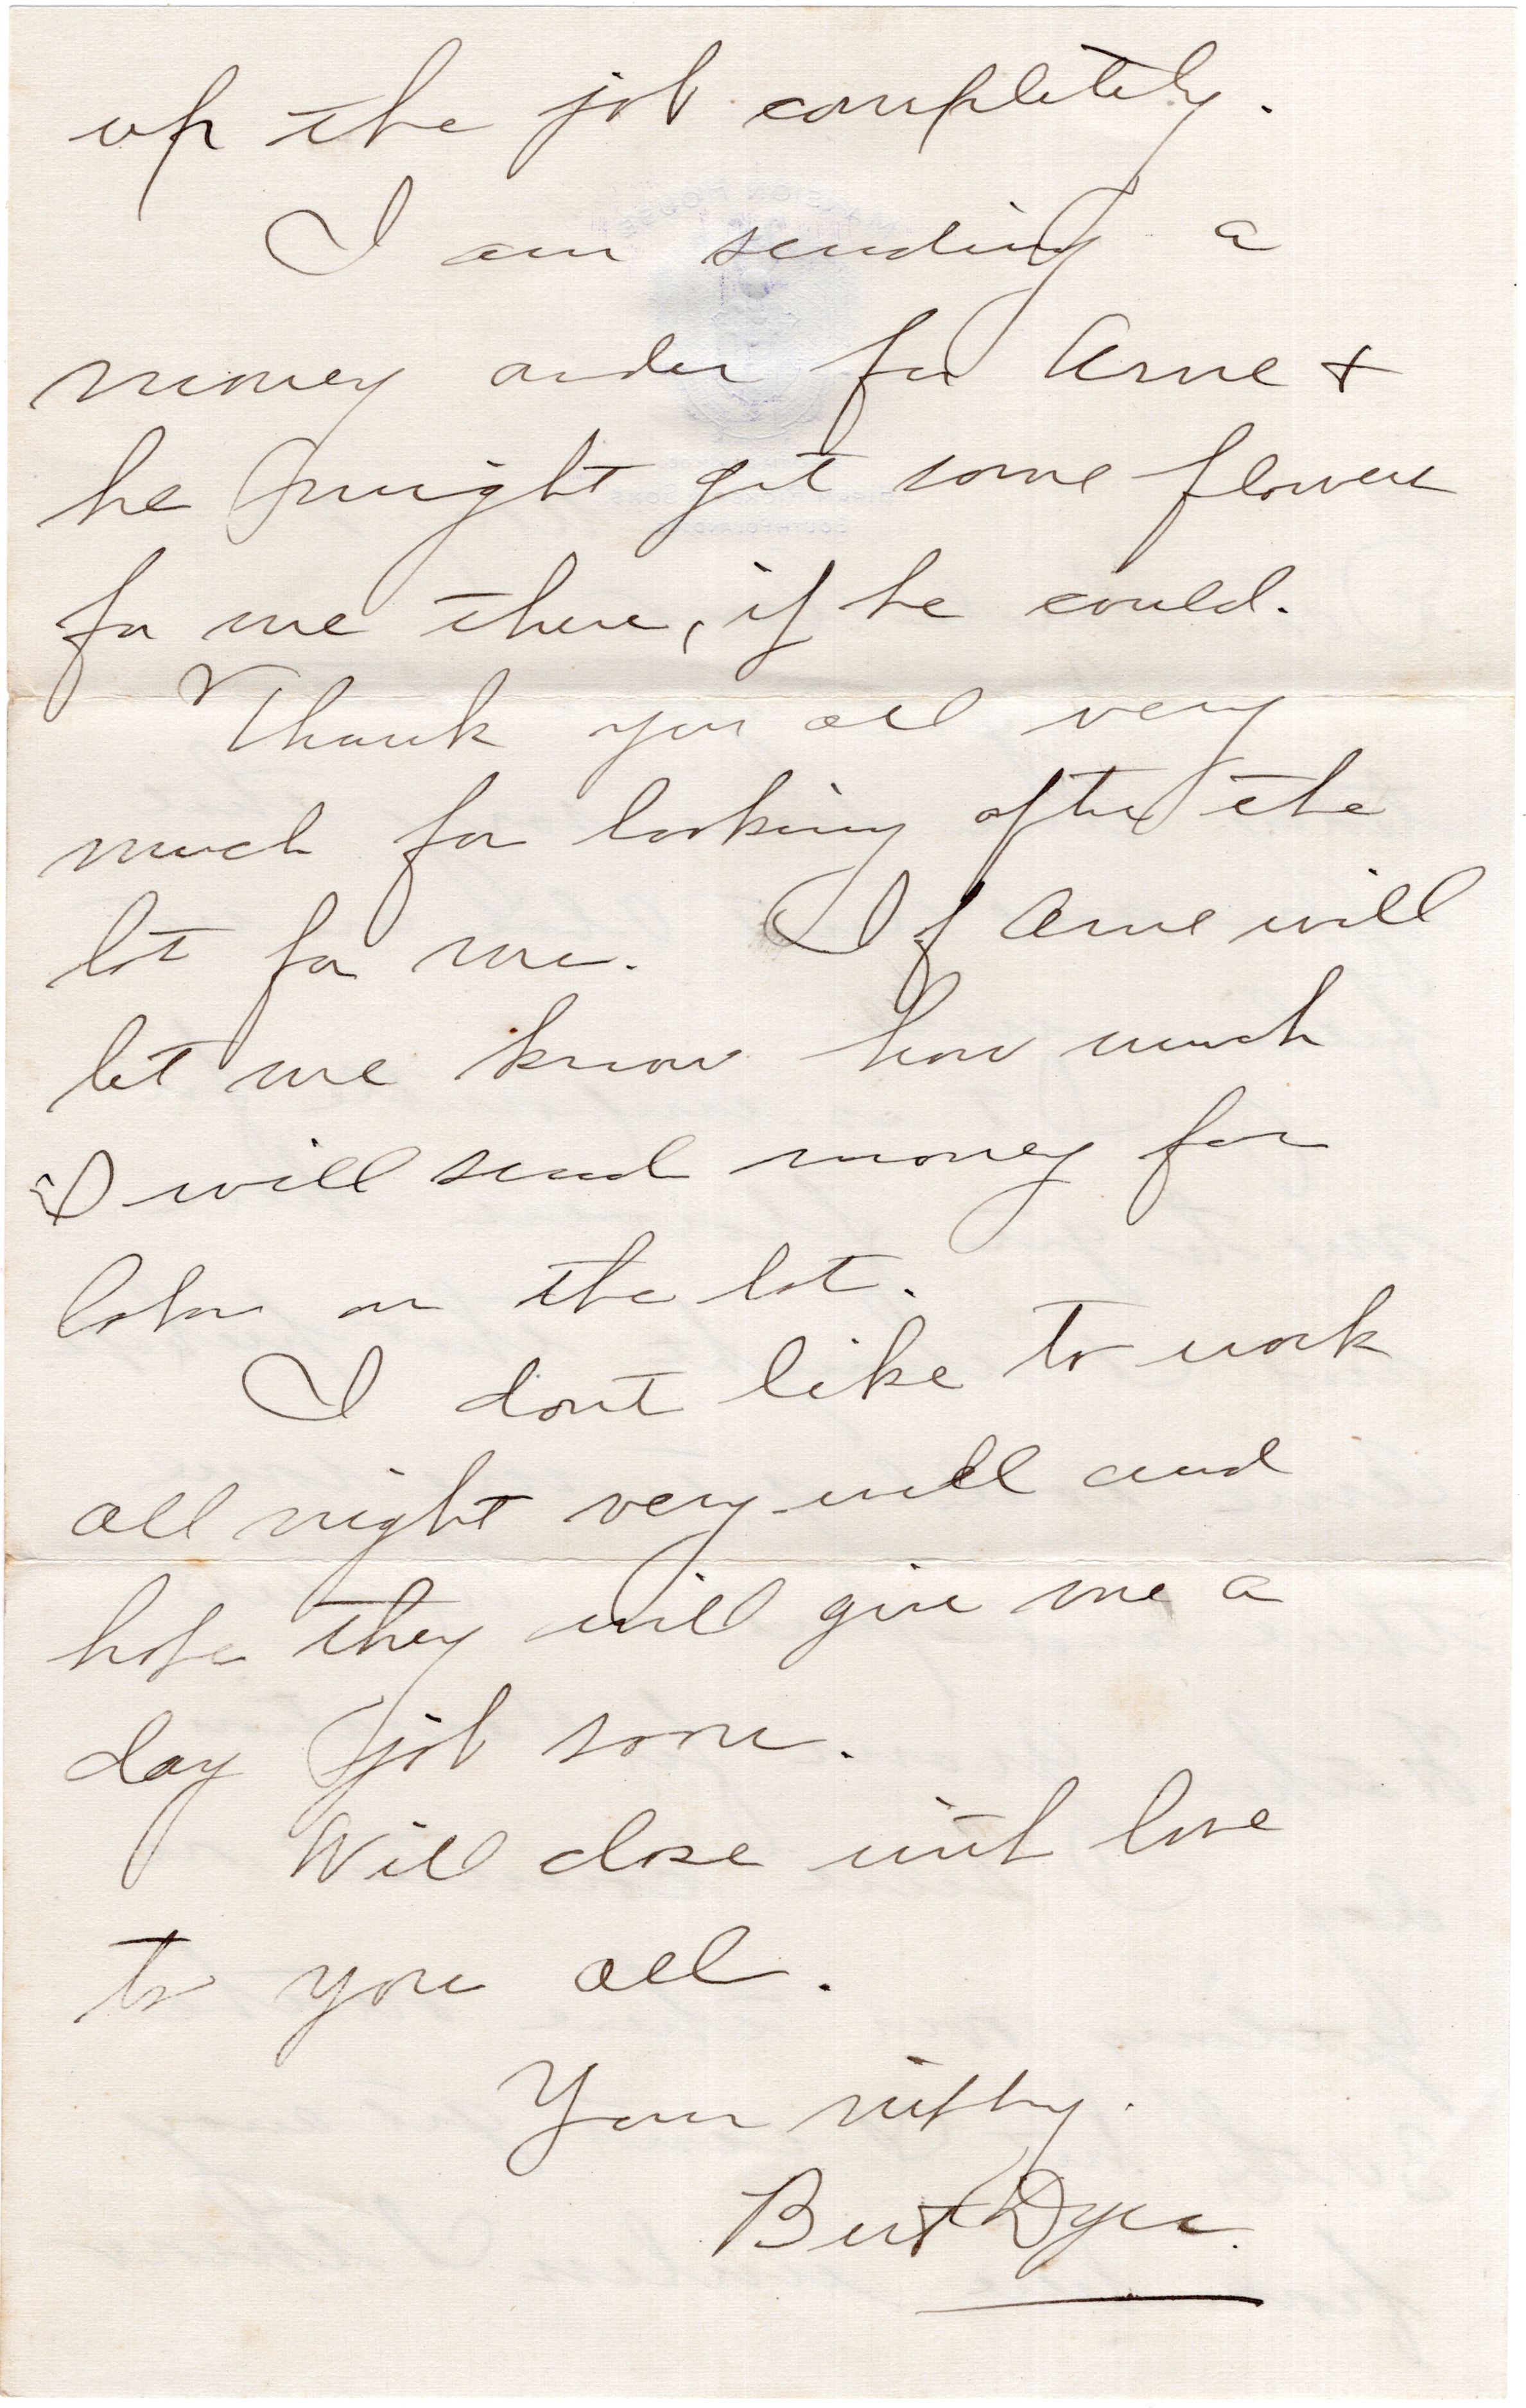 up the job completely.
I am sending a
money order for Arne +
he might get some flowers
for me there, if he could.
Thank you all very
much for looking after the
lot for me. If Arne will
let me know how much
I will send money for
labor on the lot.
I dont like to work
all night very well and
hope they will give me a
day job soon.
Will close with love
to you all.
Your
Bert Dyer.